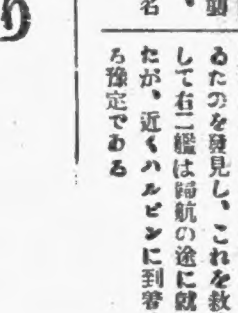 るたのを發見し、これを救
して右二艦は歸航の途に就
たが、近くハルビンに到着
る豫定である
、
名
り